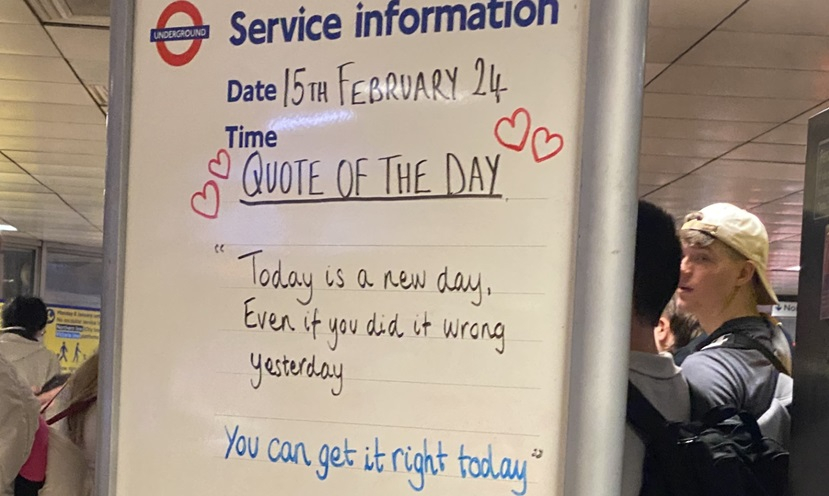 UNDERGROUND
Service information
Date 15TH FEBRUARY 24
Time
QUOTE OF THE DAY
“Today is a new day.
Even if you did it wrong
yesterday
You can get it right today”